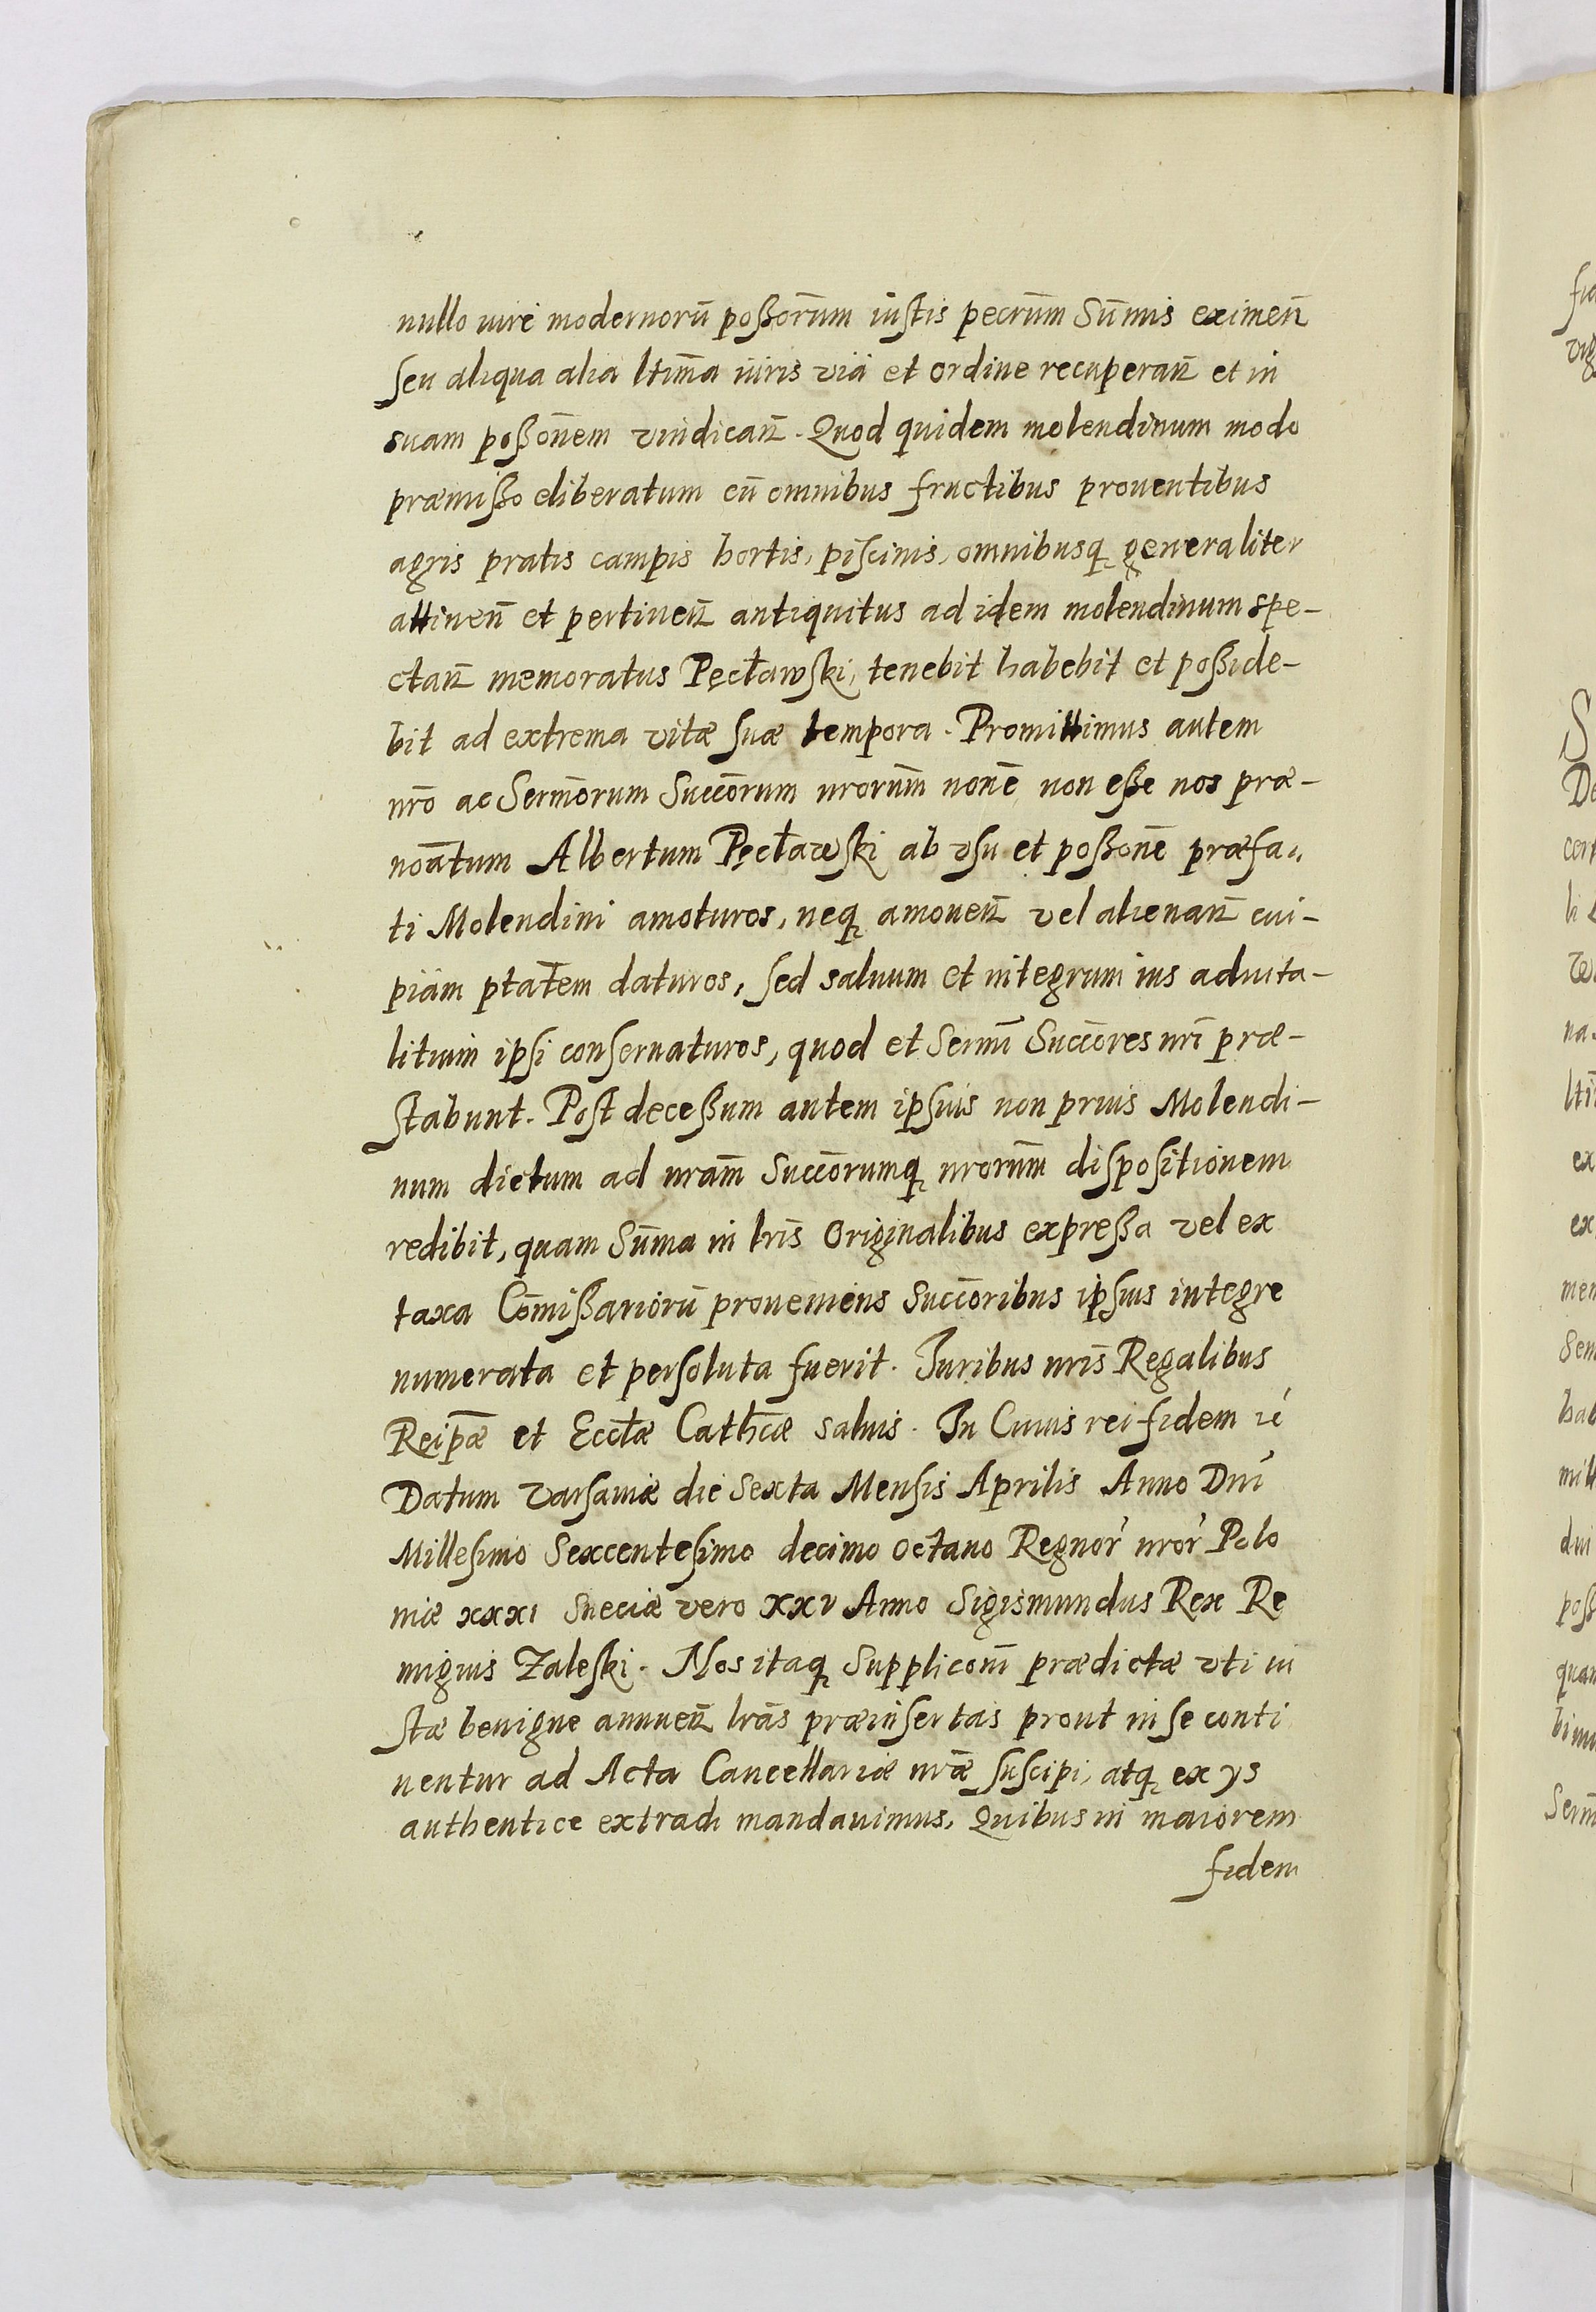 nullo iure modernorū poßor̄um iustis pecrūm Sūmis eximen̄
seu aliqua alia ltim̄a iuris via et ordine recuperan̄ et in
suam poßōnem vindican̄. Quod quidem molendinum modo
præmißo eliberatum cū omnibus fructibus prouentibus
agris pratis campis hortis, piscinis, omnibusq̨ generaliter
attinen̄ et pertinen̄ antiquitus ad idem molendinum spe-
ctan̄ memoratus Pęcławski, tenebit habebit et poßide-
bit ad extrema vitæ suæ tempora. Promittimus autem
nr̄o ac Serm̄orum Succōrum nrorūm noīe, non eße nos præ-
noātum Albertum Pęcławski ab vsu et poßonē præfa-
ti Molendini amoturos, neq̨ amouen̄ vel alienan̄ cui-
piam ptātem daturos, sed saluum et integrum ius aduita-
litium ipsi conseruaturos, quod et Sermī Succōres nrī præ-
stabunt. Post deceßum autem ipsius non prius Molendi-
num dictum ad nram̄ Succōrumq̨ nrorūm dispositionem
redibit, quam Sūma in lrīs Originalibus expreßa vel ex
taxa Cōmißariorū proueniens Succōribus ipsius integre
numerata et persoluta fuerit. Iuribus nrīs Regalibus
Reipǣ et Eccłæ Cathcǣ saluis. In Cuius rei fidem ić
Datum Varsauiæ die Sexta Mensis Aprilis Anno Dnī
Millesimo Sexcentesimo decimo octauo Regnor' nror' Polo
niæ xxxi Sueciæ vero xxv Anno Sigismundus Rex Re
migius Zaleski. Nos itaq̨ Supplicōni prædictæ vti iu
stæ benigne annuen̄ lrās præinsertas prout in se conti
nentur ad Acta Cancellariæ nrǣ suscipi, atq̨ ex ys
authentice extradi mandauimus, Quibus in maiorem
fidem